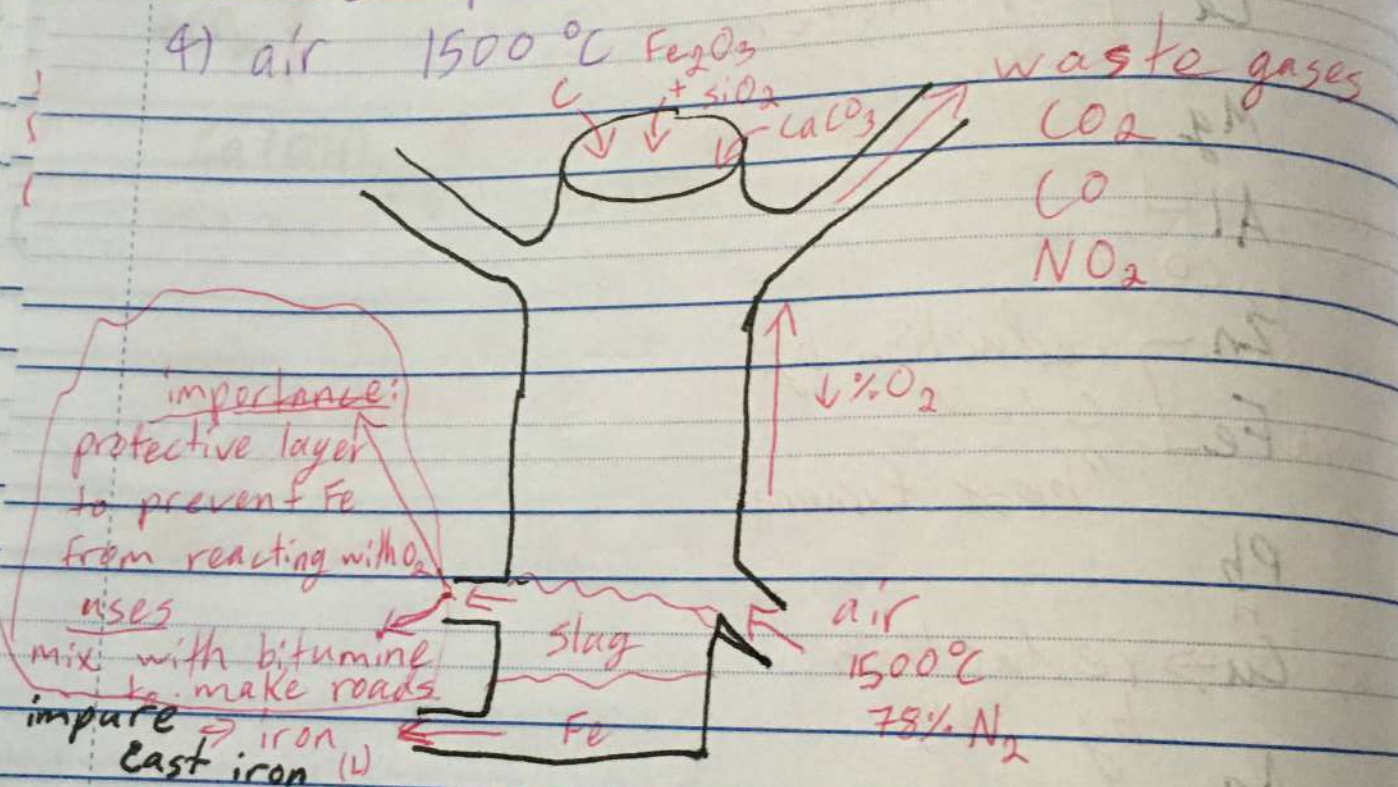 4) air 1500 °C Fe2O3
waste gases
C + SiO2
CaCO3
CO2
CO
NO2
↓%O2
importance:
protective layer
to prevent Fe
from reacting with O2
uses
mix with bitumine
to make roads
slag
air
1500°C
78% N2
impure → iron (L)
cast iron
Fe